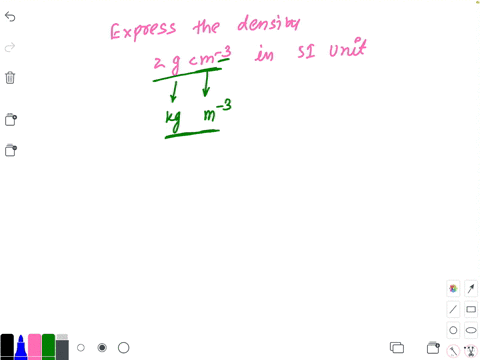 Express the density
2 g cm⁻³ in SI Unit
kg m⁻³